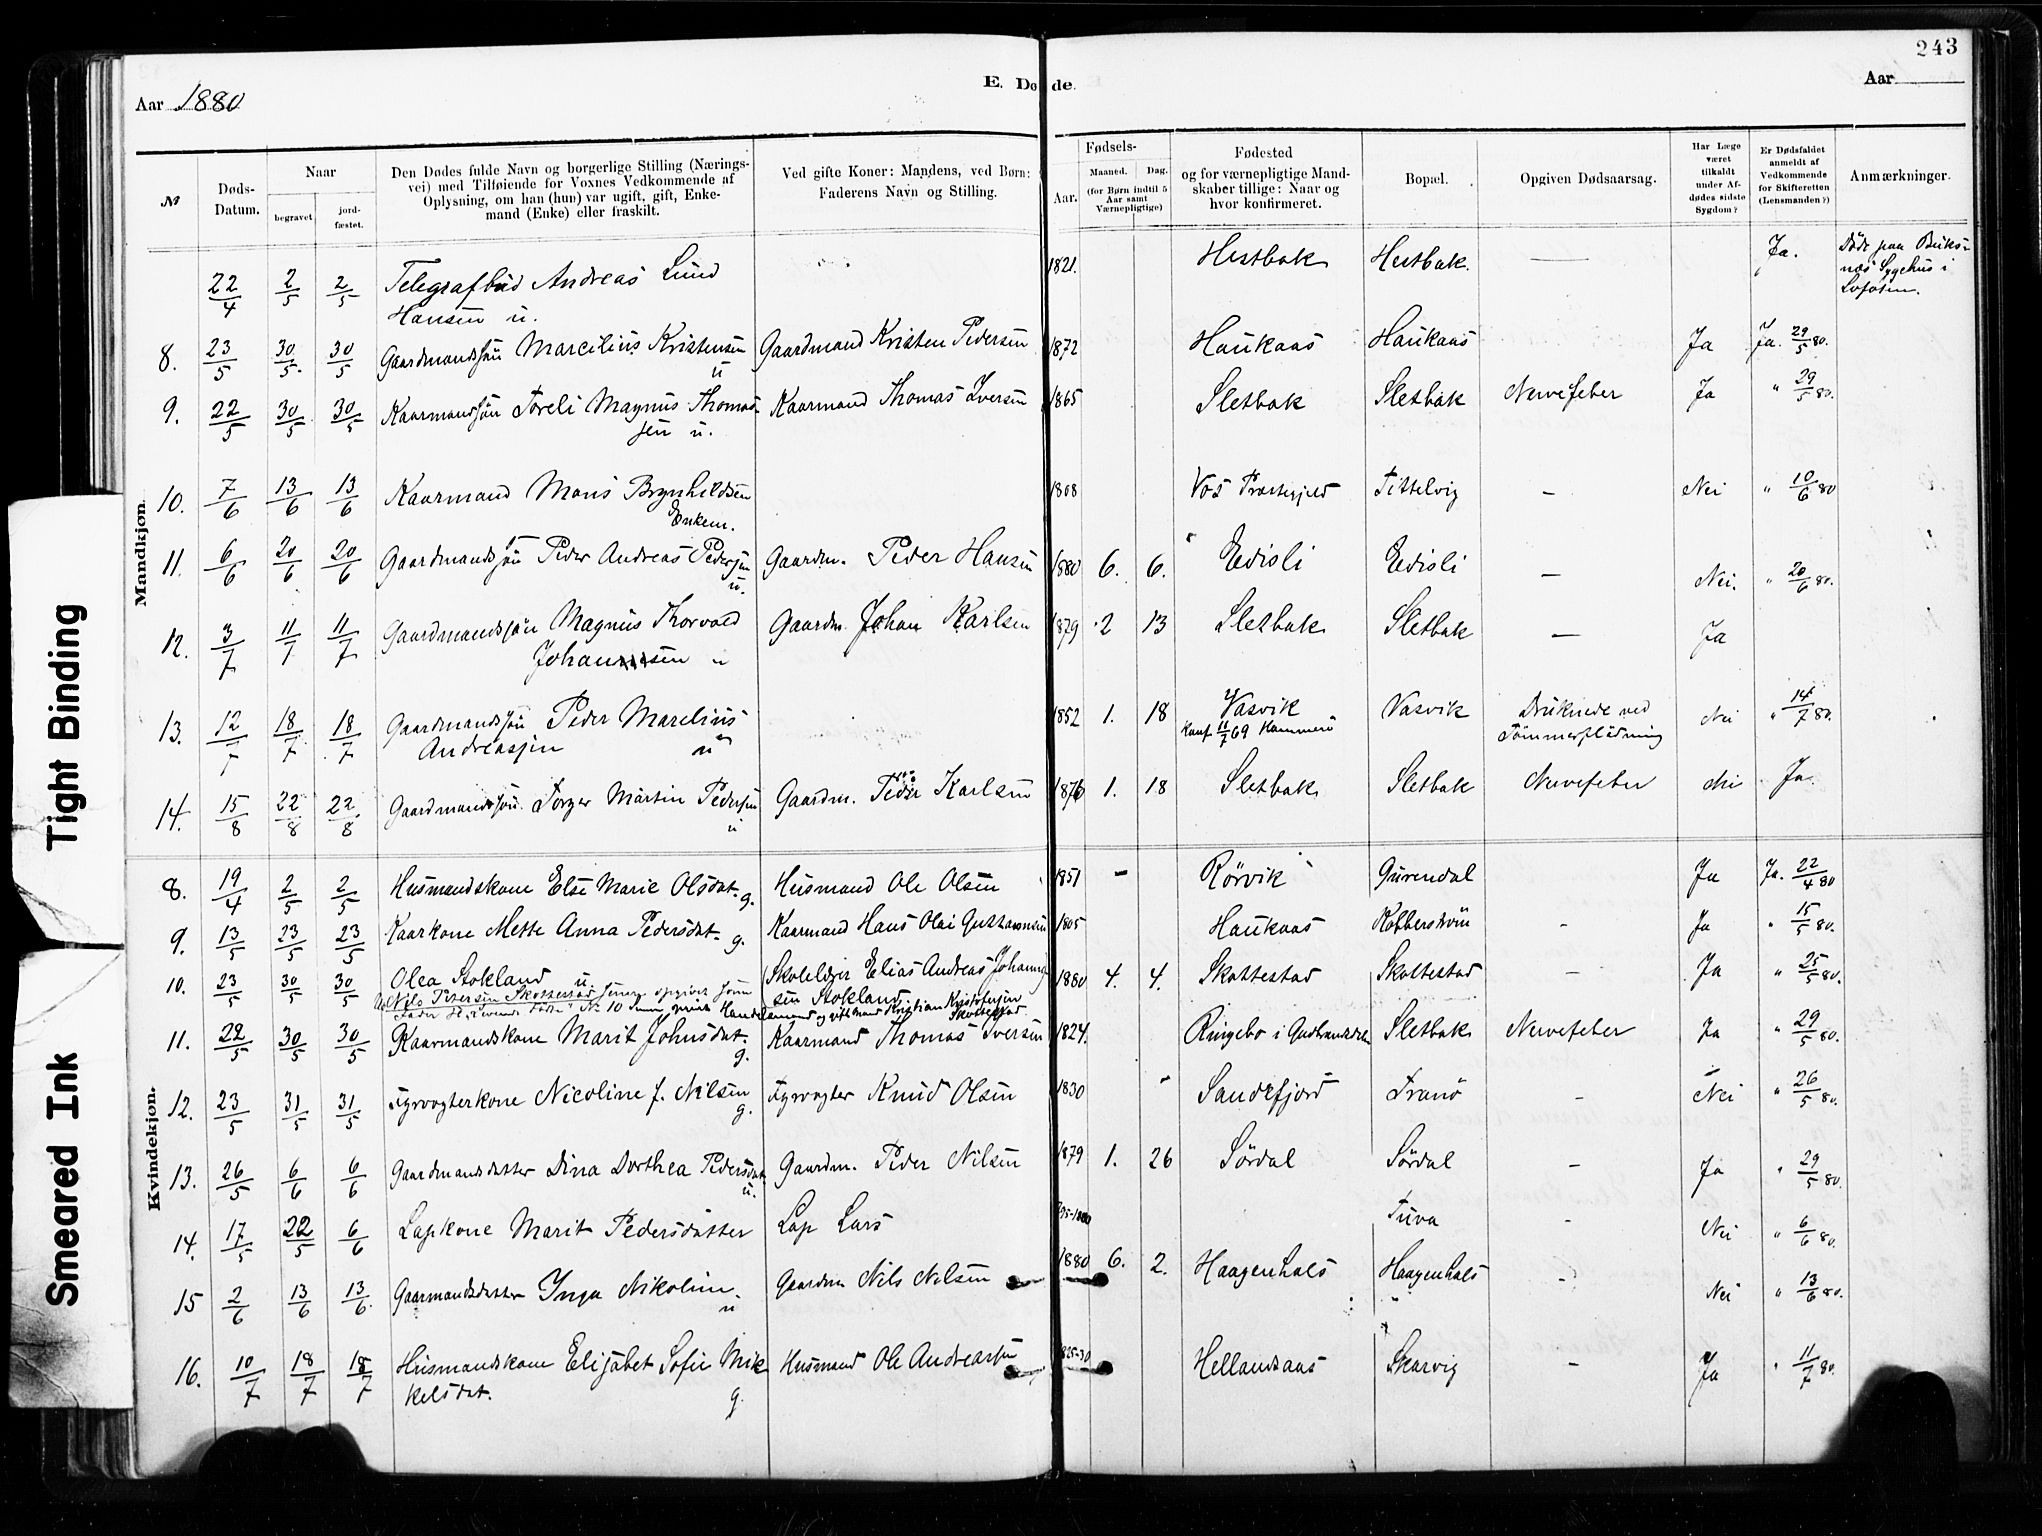 243
E. Døde.
Aar 1880
Aar
№
Døds-Datum.
Naar
begravet.
jord-fæstet.
Den Dødes fulde Navn og borgerlige Stilling (Nærings-
vei) med Tilføiende for Voxnes Vedkommende af
Oplysning, om han (hun) var ugift, gift, Enke-
mand (Enke) eller fraskilt.
Ved gifte Koner: Mandens, ved Børn:
Faderens Navn og Stilling.
Fødsels-
Aar.
Maaned.
Dag.
(for Børn indtil 5
Aar samt
Værnepligtige)
Fødested
og for værnepligtige Mand-
skaber tillige: Naar og
hvor konfirmeret.
Bopæl.
Opgiven Dødsaarsag.
Har Læge
været
tilkaldt
under Af-
dødes sidste
Sygdom?
Er Dødsfaldet
anmeldt af
Vedkommende
for Skifteretten
(Lensmanden?)
Anmærkninger.
Mandkjøn.
22/4 2/5 2/5 Telegrafbud Andreas Lund 1821. Hestbak Hestbak. — Ja. Døde paa Buks-
Hansen u. næs Sygehus i
Lofoten.
8. 23/5 30/5. 30/5 Gaardmandssøn Marcilius Kristensen Gaardmand Kristen Pedersen 1872 Haukaas Haukaas Ja Ja. 29/5 80.
u
9. 22/5 30/5 30/5 Kaarmandssøn Toreli Magnus Thomas- Kaarmand Thomas Iversen 1865 Sletbak Sletbak Nervefeber Ja " 29/5 80.
sen u.
10. 7/6 13/6 13/6 Kaarmand Mons Brynhildsen 1808 Vos Præstegjeld Tittelvig — Nei " 10/6 80
Enkem.
11. 6/6 20/6 20/6 Gaardmandssøn Peder Andreas Pedersen Gaardm. Peder Hansen 1880 6. 6. Edisli Edisli — Nei. " 20/6 80.
u.
12. 3/7 11/7 11/7 Gaardmandssøn Magnus Thorvald Gaardm. Johan Karlsen 1879 2 13 Sletbak Sletbak — Ja
Johansen u
13. 12/7 18/7 18/7 Gaardmandssøn Peder Marelius 1852 1. 18 Vasvik Vasvik Druknede ved Nei " 14/7 80.
Andreassen u konf. 11/7 69 Hammerø Tømmerflødning
14. 15/8 22/8 22/8 Gaardmandssøn Torger Martin Pedersen Gaardm. Peder Karlsen 1876 1. 18 Sletbak Sletbak Nervefeber Nei Ja
u
Kvindekjøn.
8. 19/4 2/5 2/5 Husmandskone Else Marie Olsdat. g. Husmand Ole Olsen 1851 — Rørvik Gurendal Ja Ja. 22/4 80
9. 13/5 23/5 23/5 Kaarkone Mette Anna Pedersdat. g. Kaarmand Hans Olai 1805 Haukaas Kobberstrøm - Ja " 15/5 80.
10. 23/5 30/5 30/5 Olea Stokland u. Skolelærer Elias Andreas Johannes- 1880 4. 4. Skottestad Skottestad - Ja " 25/5 80.
sen Stokland
Nils Petersen Skottestad senere opgiver som
Fader No 10
og gift Mand Kristian Kristofersen
Skottestad
11. 22/5 30/5 30/5 Kaarmandskone Marit Johnsdat. g. Kaarmand Thomas Iversen 1824. Ringebo i Gudbrandsdalen Sletbak Nervefeber Ja " 29/5 80.
12. 23/5 31/5 31/5 Fyrvogterkone Nicoline f. Nilsen g. Fyrvogter Knud Olsen 1830 Sandefjord Tranø - Nei " 26/5 80.
13. 26/5 6/6 6/6 Gaardmandsdatter Dina Dorthea Pedersdat. u. Gaardm. Peder Nilsen 1879 1. 26 Sørdal Sørdal - Ja " 29/5 80.
14. 17/5 22/5 6/6 Lapkone Marit Pedersdatter Lap Lars Tuva - Nei " 6/6 80.
15 2/6 13/6 13/6. Gaarmandsdatter Inga Nikoline. u Gaardm Nils Nilsen 1880 6. 2. Haagenhals Haagenhals - Nei " 13/6 80.
16. 10/7 18/7 18/7 Husmandskone Elisabet Sofie Mik Husmand Ole Andreassen 1825-30 Hellandsaas Skarvig - Ja " 11/7 80.
kelsdat. g.
Tight Binding
Smeared Ink